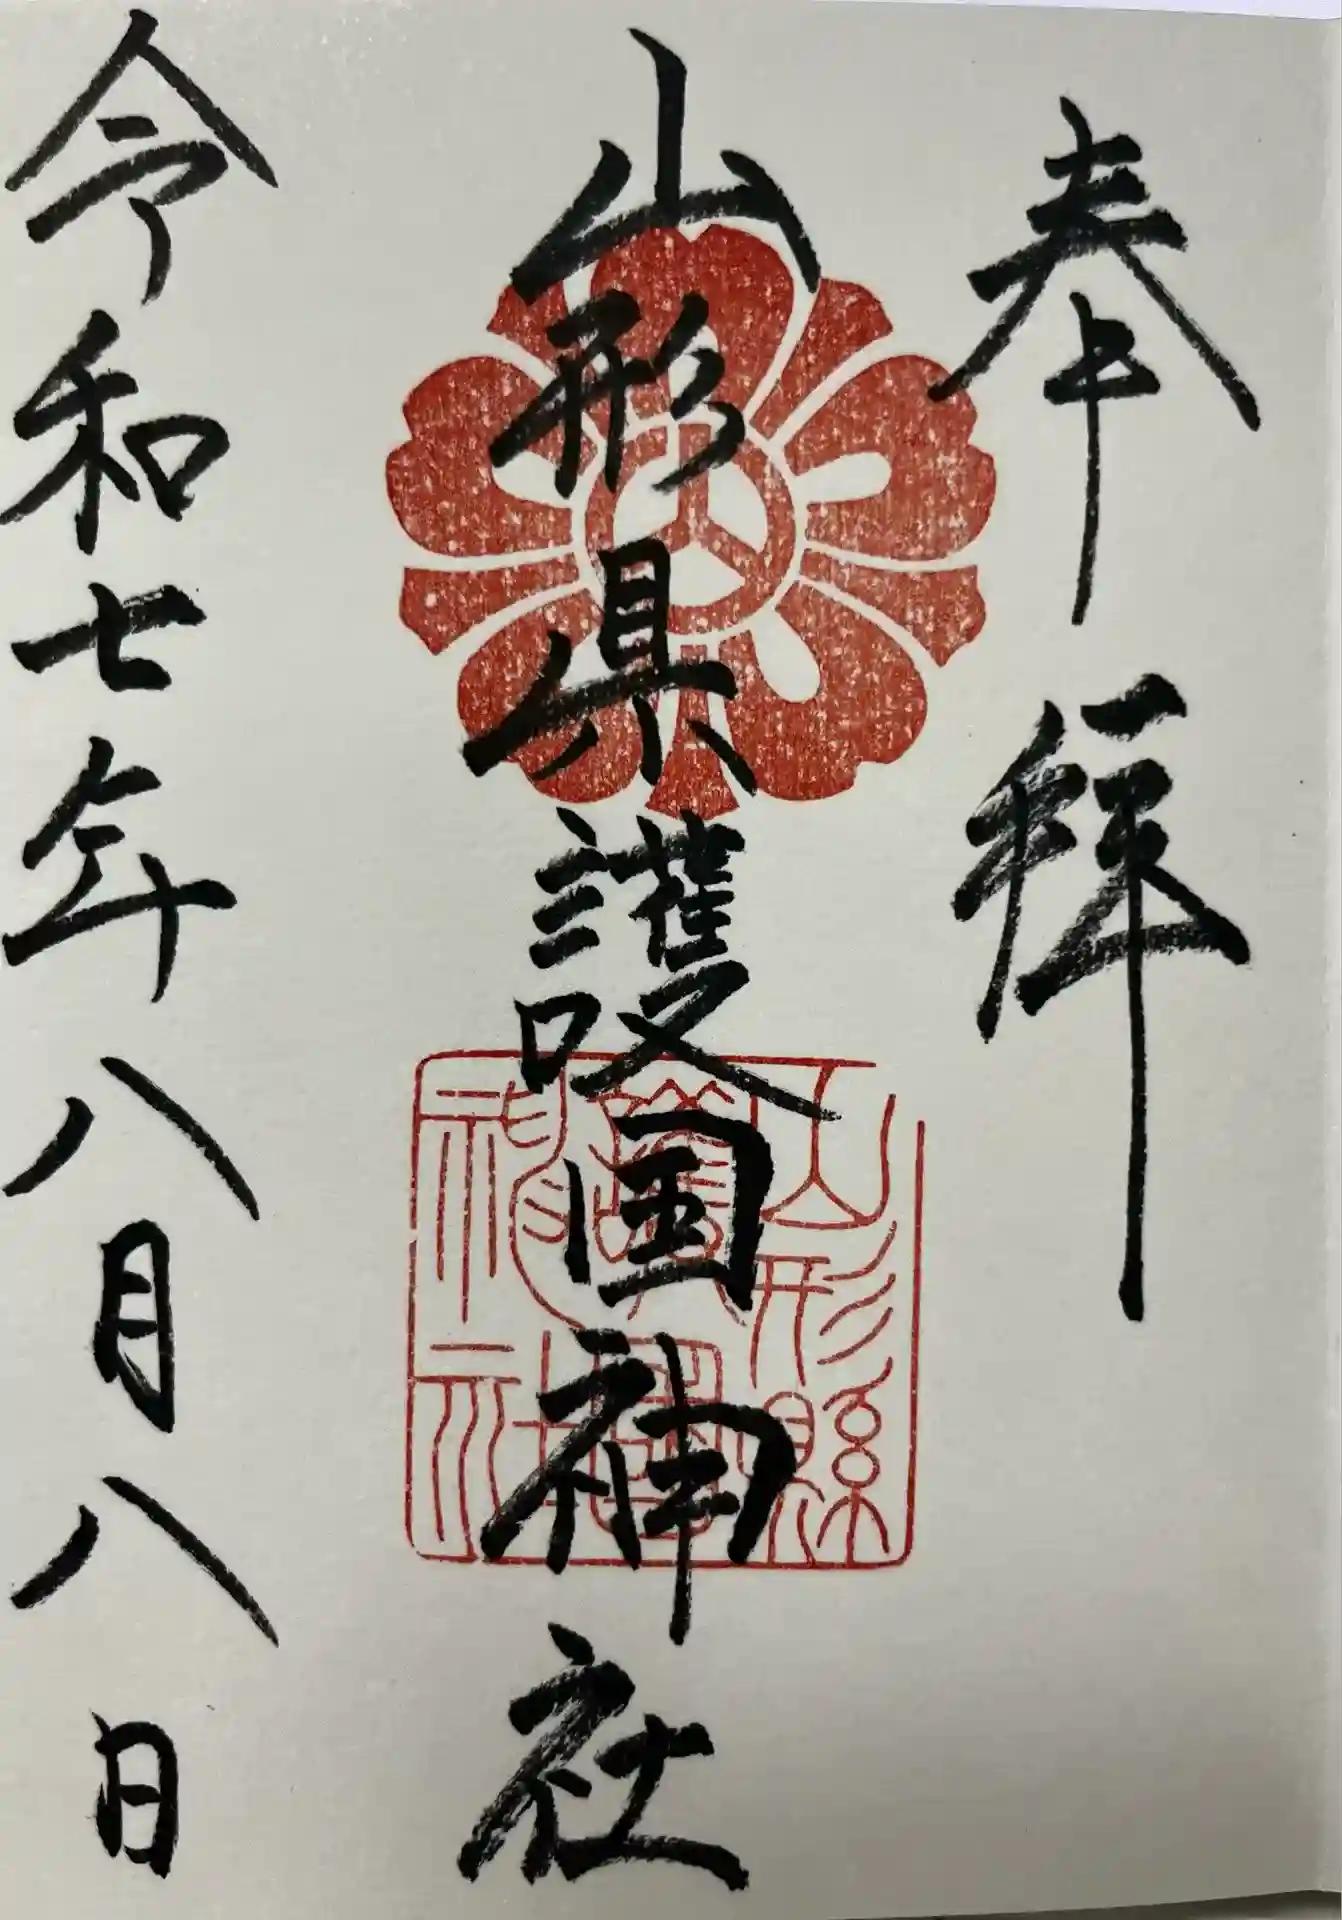 奉拝
山形県護国神社
山形縣
護國
神社
令和七年八月八日